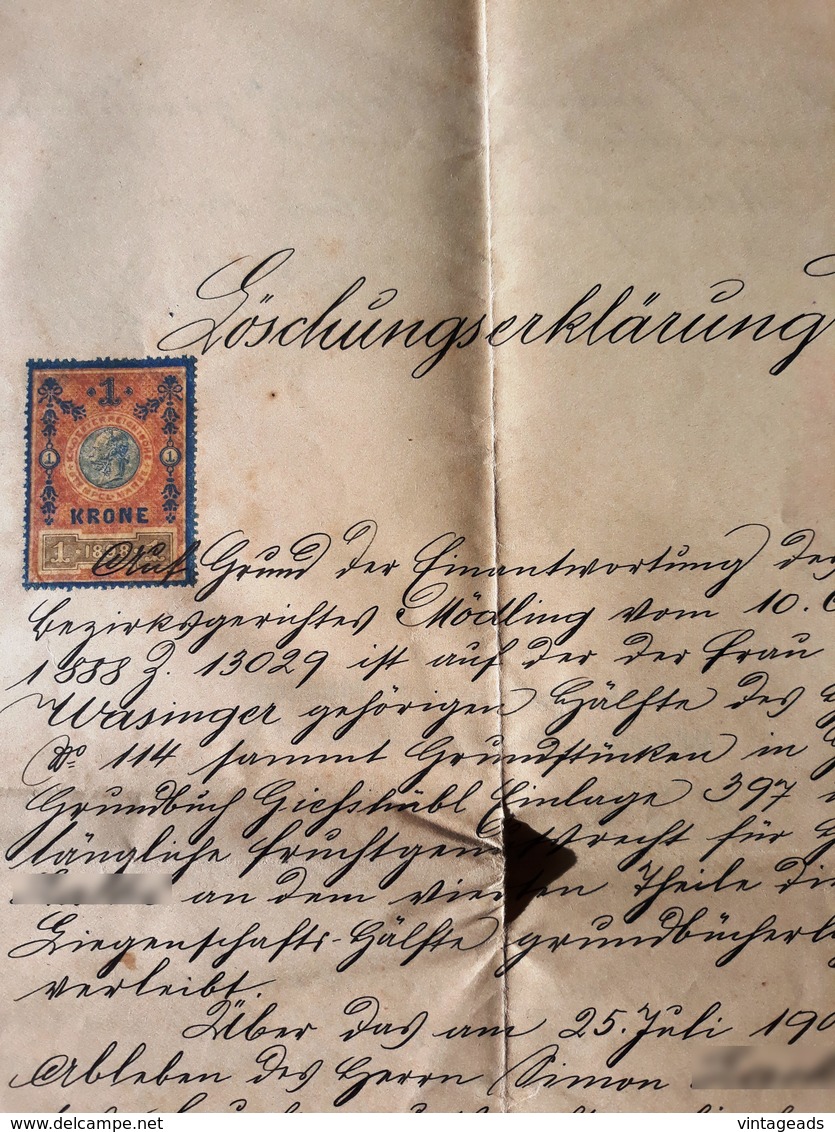 Löschungserklärung
1
OESTERREICHISCHE STEMPEL-MARKE
1 1
KRONE
1 1898
Auf Grund der Einantwortung des
Bezirksgerichtes Mödling vom 10.
1888 Z. 13029 ist auf der der Frau
Wasinger gehörigen Hälfte des
No 114 sammt Grundstücken in
Grundbuch Giesshübl Einlage 397
längliche Fruchtgenussrecht für
an dem vierten Theile
Liegenschafts-Hälfte grundbücherl
verleibt.
Über das am 25. Juli 190
Ableben des Herrn Simon
www.delcampe.net
vintageads